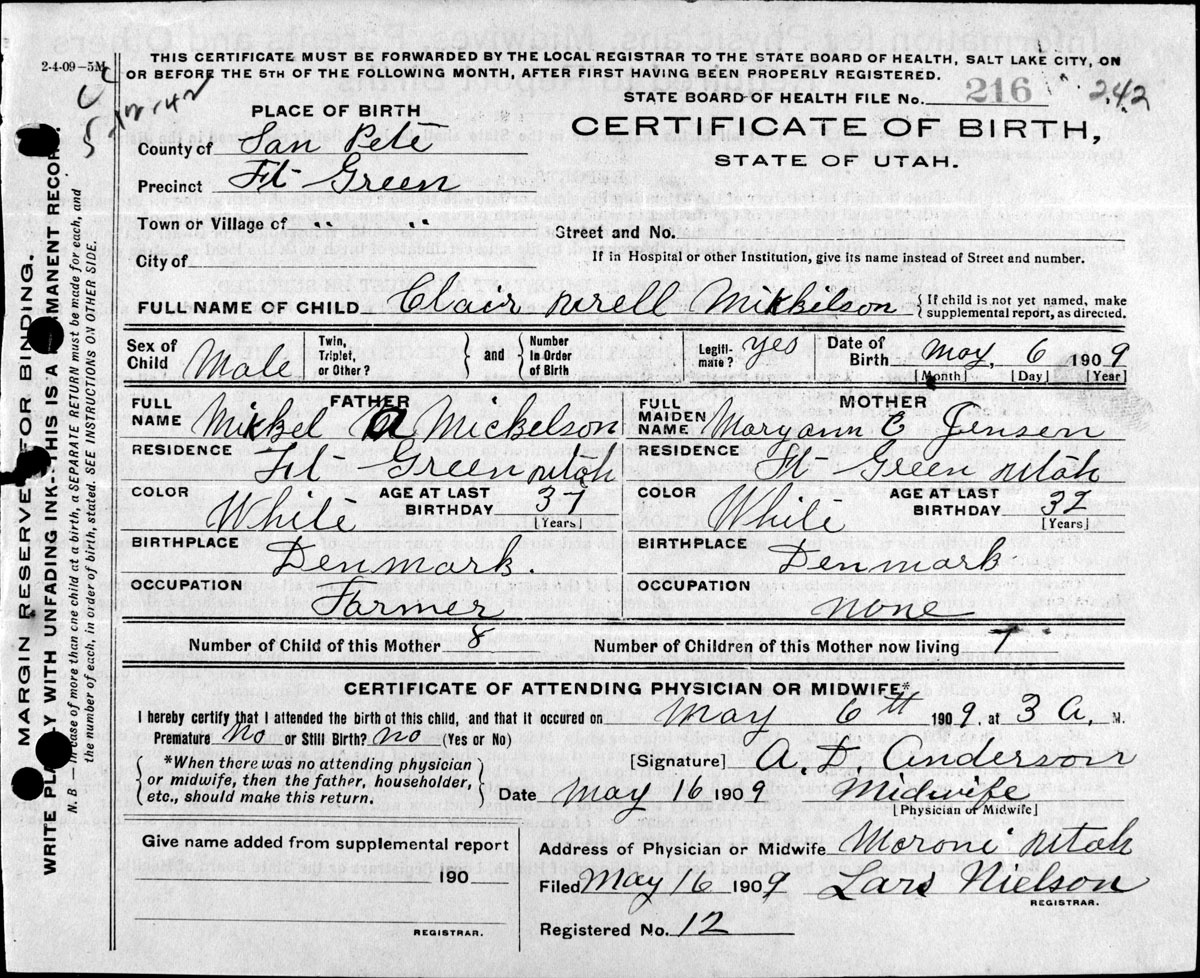 THIS CERTIFICATE MUST BE FORWARDED BY THE LOCAL REGISTRAR TO THE STATE BOARD OF HEALTH, SALT LAKE CITY, ON
2-4-09-5M OR BEFORE THE 5TH OF THE FOLLOWING MONTH, AFTER FIRST HAVING BEEN PROPERLY REGISTERED.
STATE BOARD OF HEALTH FILE No. 216 242
PLACE OF BIRTH
CERTIFICATE OF BIRTH,
STATE OF UTAH.
County of San Pete
Precinct Ft Green
Town or Village of " "
Street and No.
City of
If in Hospital or other Institution, give its name instead of Street and number.
FULL NAME OF CHILD Clair Mikkelson { If child is not yet named, make
supplemental report, as directed.
Sex of Child Male Twin, Triplet, or Other? } and { Number in Order of Birth Legiti-mate? yes Date of Birth May, 6 1909
[Month] [Day] [Year]
FATHER
FULL NAME Mikkel A Mickelson
MOTHER
FULL MAIDEN NAME Maryann C Jensen
RESIDENCE Ft Green Utah
RESIDENCE Ft Green Utah
COLOR White AGE AT LAST BIRTHDAY 37 [Years]
COLOR White AGE AT LAST BIRTHDAY 32 [Years]
BIRTHPLACE Denmark.
BIRTHPLACE Denmark
OCCUPATION Farmer
OCCUPATION none
Number of Child of this Mother 8 Number of Children of this Mother now living 7
CERTIFICATE OF ATTENDING PHYSICIAN OR MIDWIFE*
I hereby certify that I attended the birth of this child, and that it occured on May 6th 1909. at 3 A. M.
Premature No or Still Birth? no (Yes or No)
{ *When there was no attending physician
or midwife, then the father, householder,
etc., should make this return. }
[Signature] A. D. Anderson
Date May 16 1909 Midwife
[Physician or Midwife]
Give name added from supplemental report
190
REGISTRAR.
Address of Physician or Midwife Moroni Utah
Filed May 16 1909 Lars Nielson
REGISTRAR.
Registered No. 12
MARGIN RESERVED FOR BINDING.
WRITE PLAINLY WITH UNFADING INK-THIS IS A PERMANENT RECORD.
N. B.—In case of more than one child at a birth, a SEPARATE RETURN must be made for each, and
the number of each, in order of birth, stated. SEE INSTRUCTIONS ON OTHER SIDE.